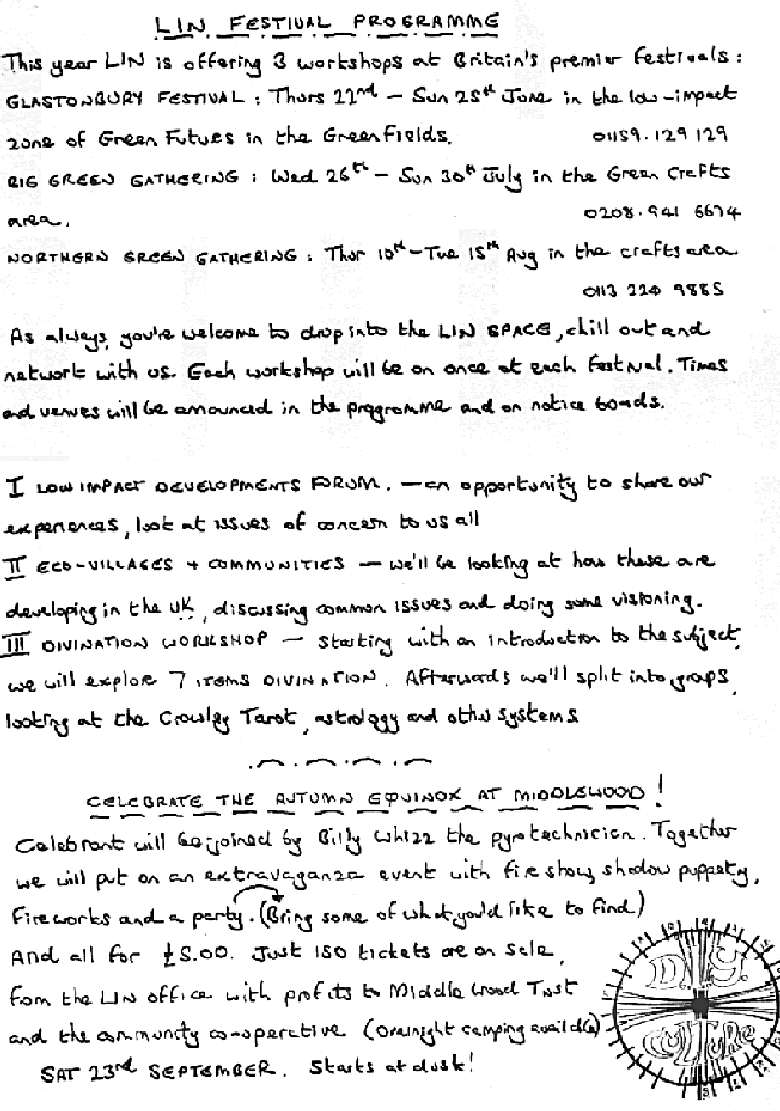 LIN FESTIVAL PROGRAMME
This year LIN is offering 3 workshops at Britain's premier festivals:
GLASTONBURY FESTIVAL: Thurs 22nd - Sun 25th June in the low-impact
zone of Green Futues in the Greenfields. 01159.129 129
BIG GREEN GATHERING: Wed 26th - Sun 30th July in the Green Crafts
area. 0208.941 6674
NORTHERN GREEN GATHERING: Thur 10th - Tue 15th Aug in the crafts area
0113 224 9885
As always, you're welcome to drop into the LIN SPACE, chill out and
network with us. Each workshop will be on once at each festival. Times
and venues will be announced in the programme and on notice boards.
I LOW IMPACT DEVELOPMENTS FORUM. - an opportunity to share our
experiences, look at issues of concern to us all
II ECO-VILLAGES + COMMUNITIES - we'll be looking at how these are
developing in the UK, discussing common issues and doing some visioning.
III DIVINATION WORKSHOP - starting with an introduction to the subject,
we will explore 7 ITEMS DIVINATION. Afterwards we'll split into groups
looking at the Crowley Tarot, astrology and other systems
CELEBRATE THE AUTUMN EQUINOX AT MIDDLEWOOD!
Celebrant will be joined by Billy Whizz the pyrotechnician. Together
we will put on an extravaganza event with fire show, shadow puppetry,
fireworks and a party. (Bring some of what you'd like to find)
And all for £5.00. Just 150 tickets are on sale,
from the LIN office with profits to Middle Wood Trust
and the community co-operative (overnight camping available)
SAT 23rd SEPTEMBER. Starts at dusk!
D.I.Y.
CULTURE